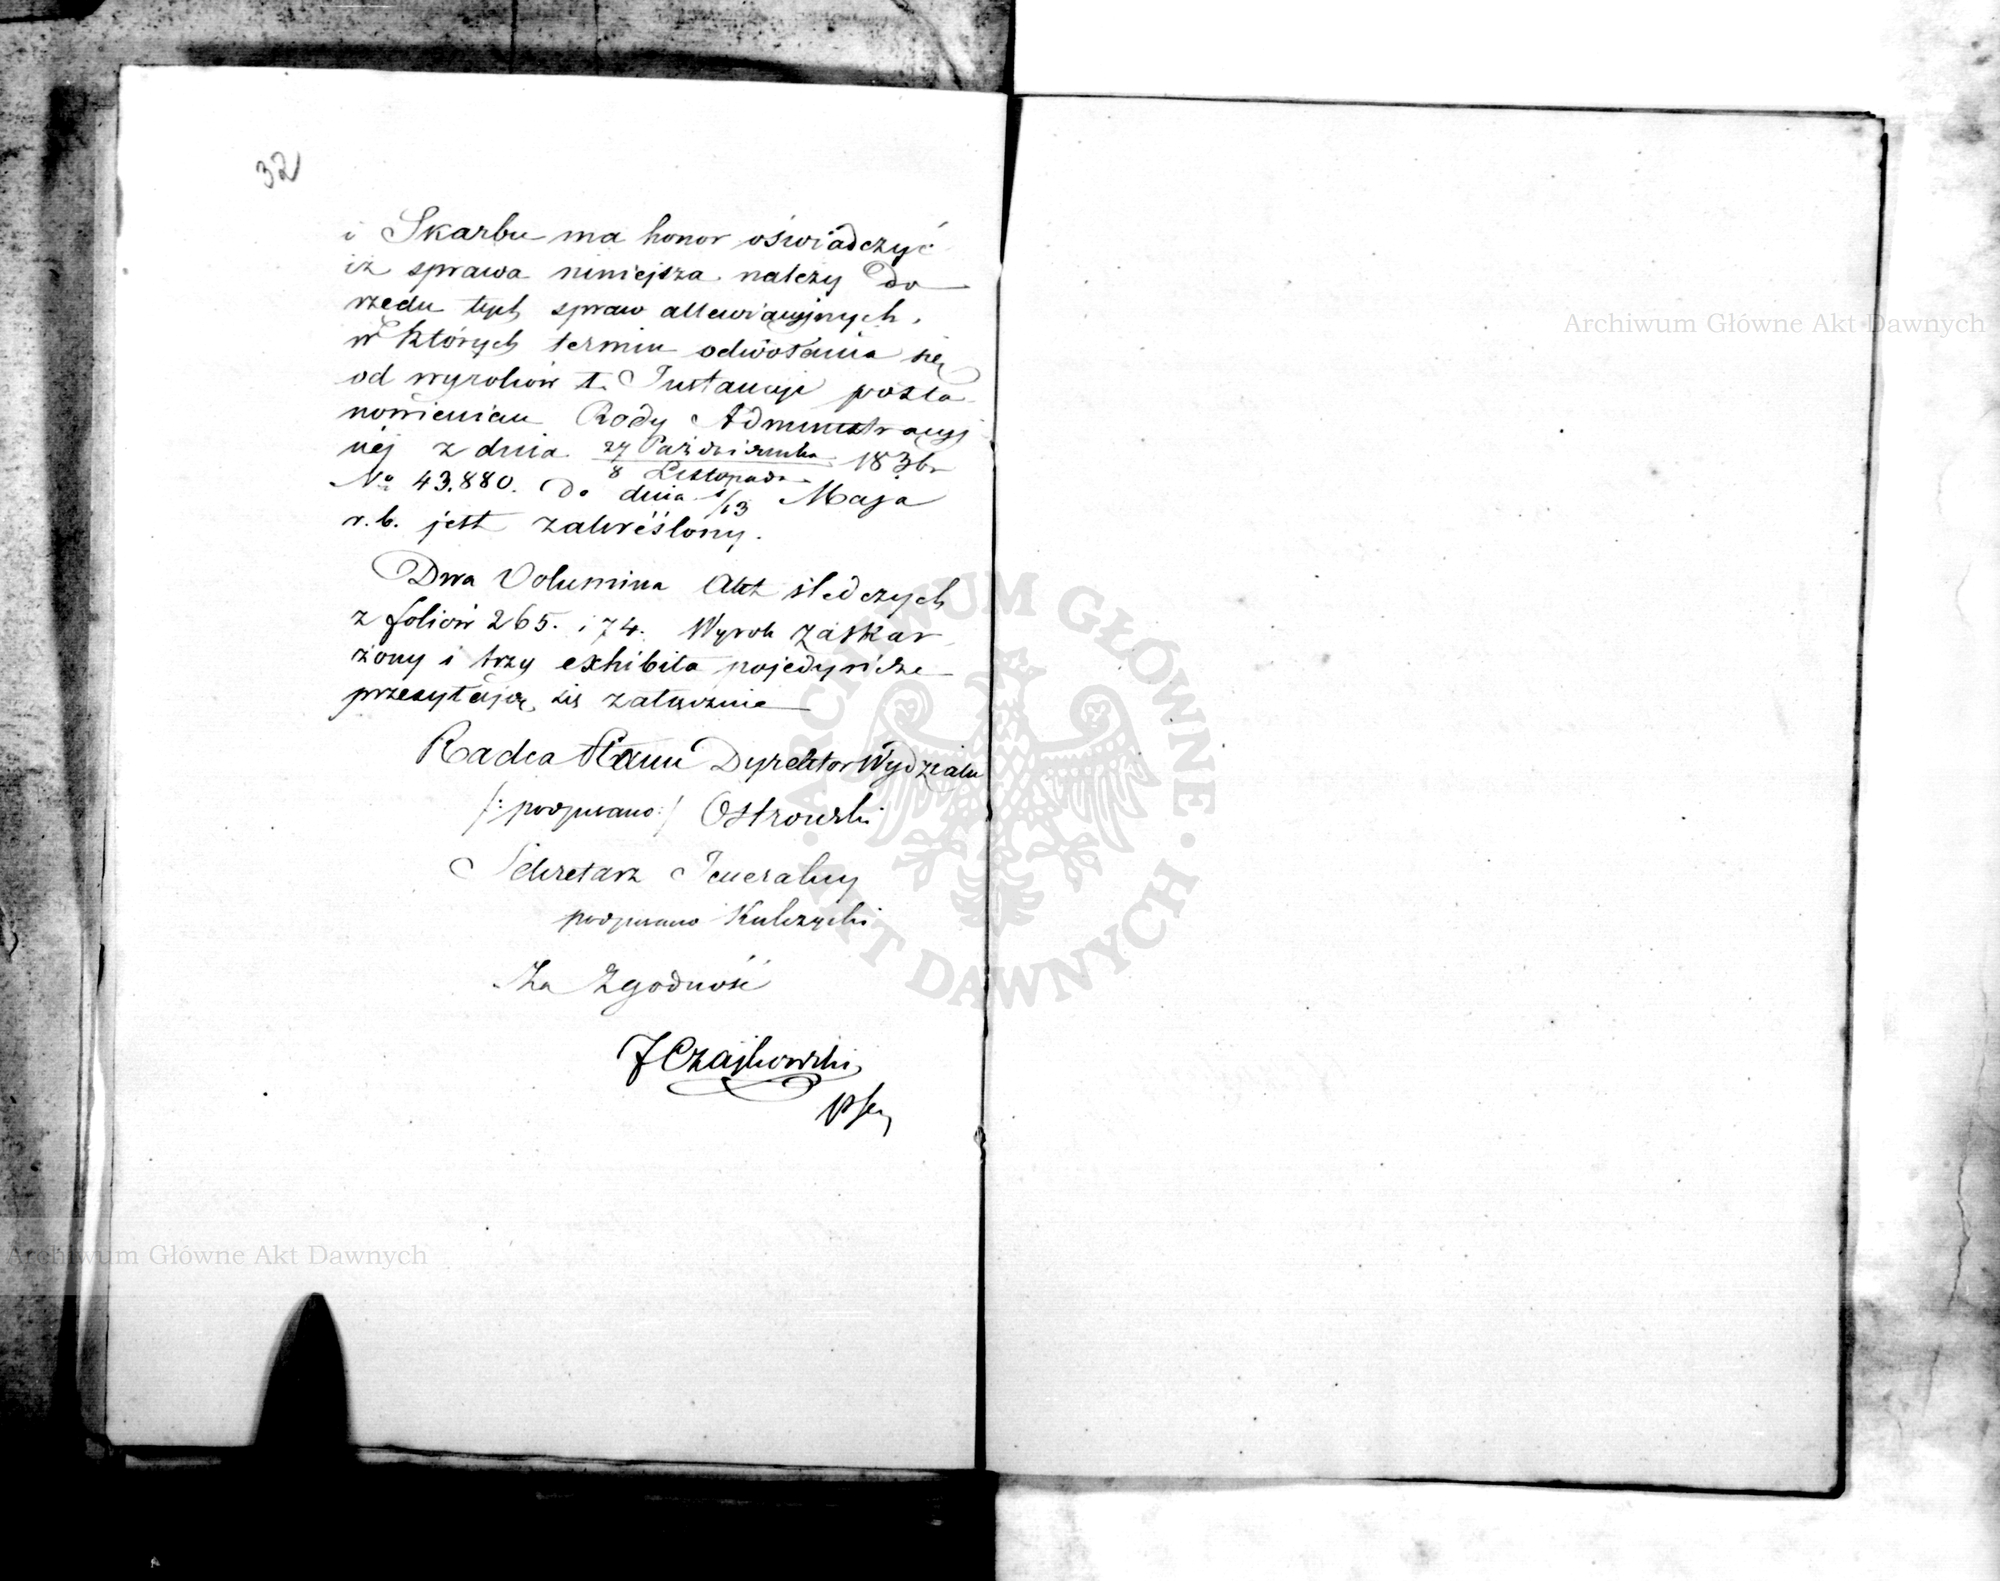 32
i Skarbu ma honor oświadczyć
iż sprawa niniejsza należy do
rzędu tych spraw allewiacyjnych,
w których termin odwołania się
od wyroków I. Instancyi posta
nowieniem Rady Administracyj
nej z dnia 27 Października / 8 Listopada 1836 r
No 43.880. do dnia 1/13 Maja
r. b. jest zakreślony.
Dwa Volumina Akt śledczych
z foliów 265. i 74. Wyrok zaskar
żony i trzy exhibita pojedyńcze
przesyłają się załącznie
Radca Stanu Dyrektor Wydziału
/: podpisano :/ Ostrowski
Sekretarz Jeneralny
podpisano Kulczycki
Za Zgodność
J Czajkowski
Archiwum Główne Akt Dawnych
ARCHIWUM GŁÓWNE · AKT DAWNYCH ·
Archiwum Główne Akt Dawnych